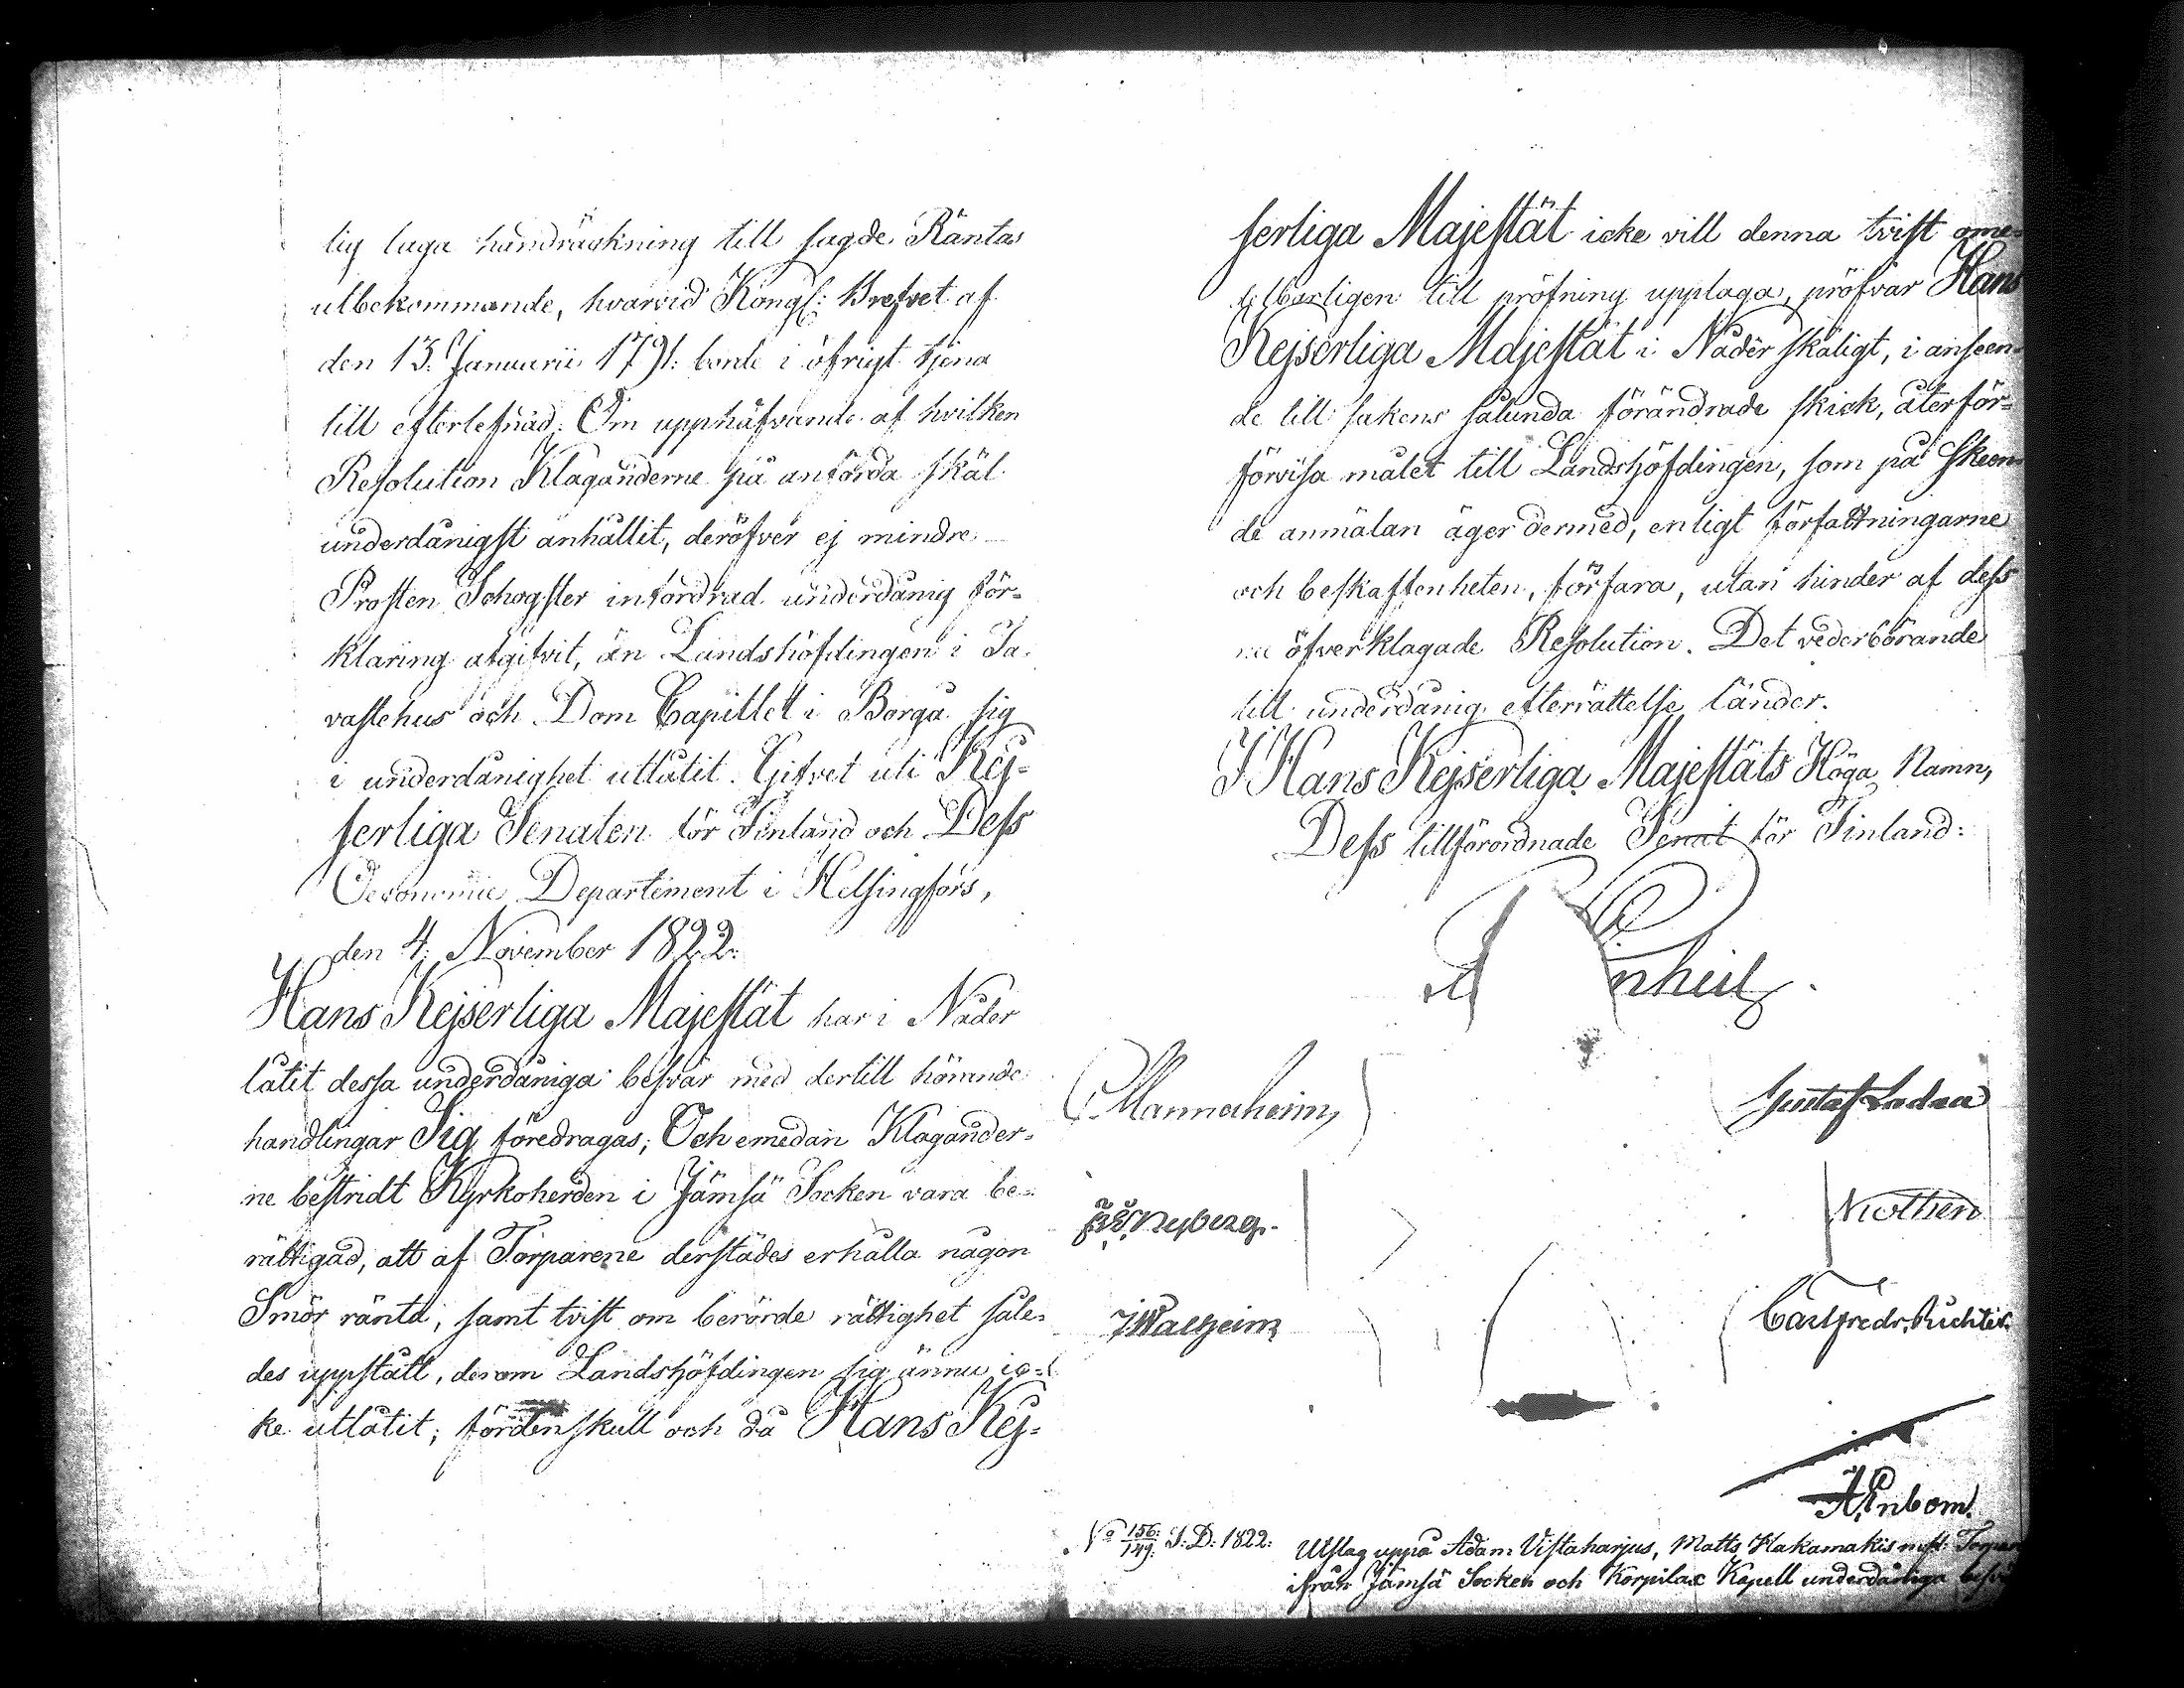 lig laga handräckning till sagde Räntas
utbekommande, hvarvid Kongl: Brefvet af
den 13. Januarii 1791. borde i öfrigt tjena
till efterlefnad; Om upphäfvande af hvilken
Resolution Klaganderne på anförda skäl
underdånigst anhållit, deröfver ej mindre
Prosten Schogster infordrad underdånig för-
klaring afgifvit, än Landshöfdingen i Ta-
vastehus och Dom Capitlet i Borgå sig
i underdånighet utlåtit. Gifvet uti Kej-
serliga Senaten för Finland och Dess
Oeconomie Departement i Helsingfors,
den 4. November 1822.
Hans Kejserliga Majestät har i Nåder
låtit dessa underdåniga besvär med dertill hörande
handlingar Sig föredragas; Och emedan Klagander-
ne bestridt Kyrkoherden i Jämsä Socken vara be-
rättigad, att af Torparene derstädes erhålla någon
Smör ränta, samt tvist om berörde rättighet såle-
des uppstått, derom Landshöfdingen sig ännu ic-
ke utlåtit; fördenskull och då Hans Kej-
serliga Majestät icke vill denna tvist ome-
delbarligen till pröfning upptaga, pröfvar Hans
Kejserliga Majestät i Nåder skäligt, i anseen-
de till sakens sålunda förändrade skick, återför-
förvisa målet till Landshöfdingen, som på skeen-
de anmälan äger dermed, enligt författningarne
och beskaffenheten, förfara, utan hinder af dess
nu öfverklagade Resolution. Det vederbörande
till underdånig efterrättelse länder.
I Hans Kejserliga Majestäts Höga Namn,
Dess tillförordnade Senat för Finland:
Mannerheim
Gustaf Ladau
Nyberg.
Nothen
J Walheim
Carl Fredr. Richter.
A. Enbom.
No 156:/149: S: D: 1822.
Utslag uppå Adam Vistaharjus, Matts Hakamakis m fl. Torpar
ifrån Jämsä Socken och Korpilax Kapell underdåniga besv